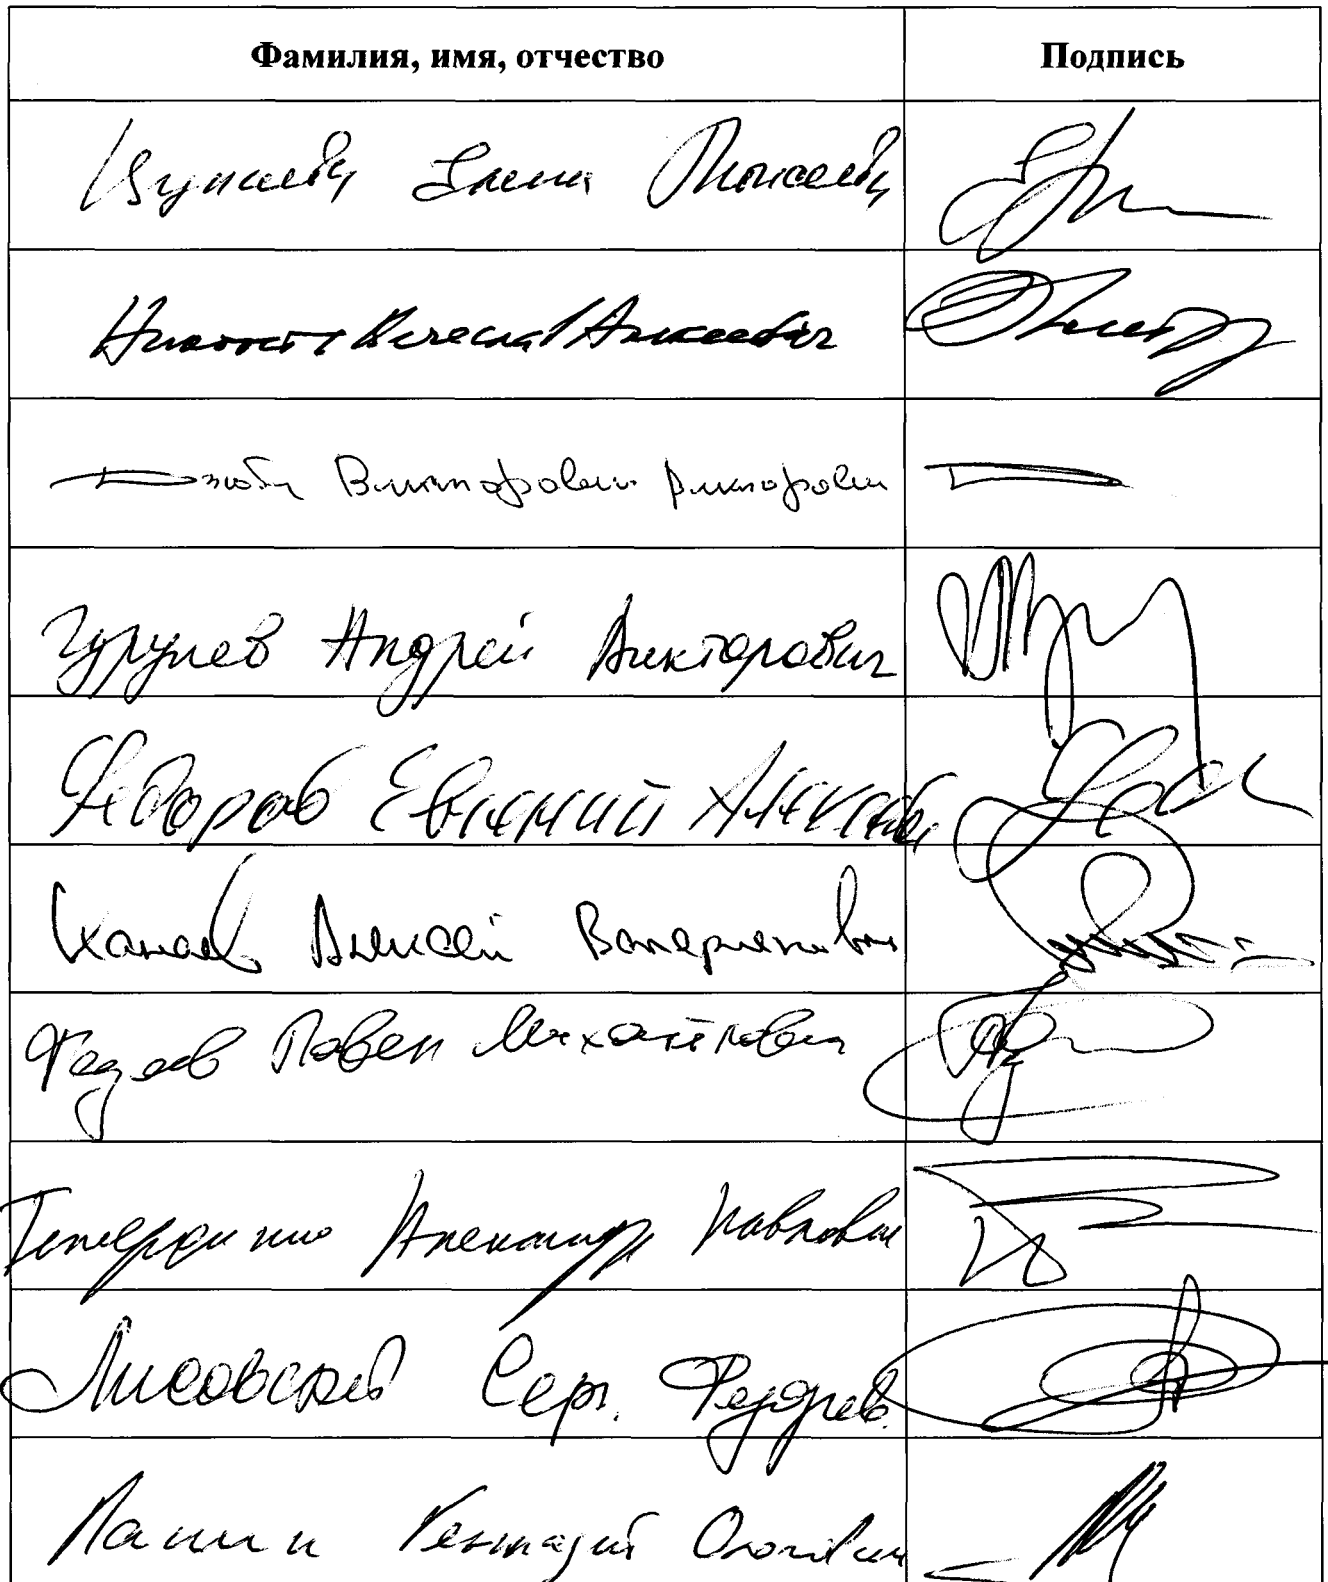 Фамилия, имя, отчество Подпись
Елена Моисеевна
Вячеслав Алексеевич
Дзюба Викторович Викторович
Гурулев Андрей Викторович
Федоров Евгений Алексеев
Канаев Алексей Валерианович
Фадеев Павел Михайлович
Александр Павлович
Лисовский Серг. Федоров.
Панин Геннадий Олегович